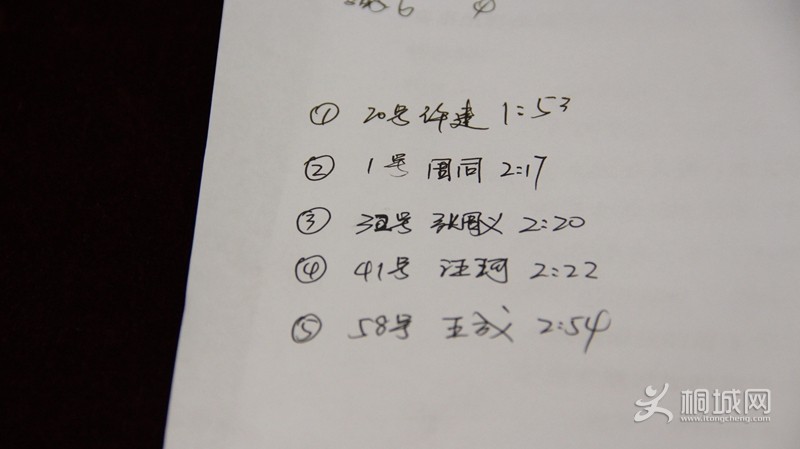 6 4
① 20号 许建 1:53
② 1号 周同 2:17
③ 号 张周义 2:20
④ 41号 汪珂 2:22
⑤ 58号 王 2:54
桐城网
www.itongcheng.com